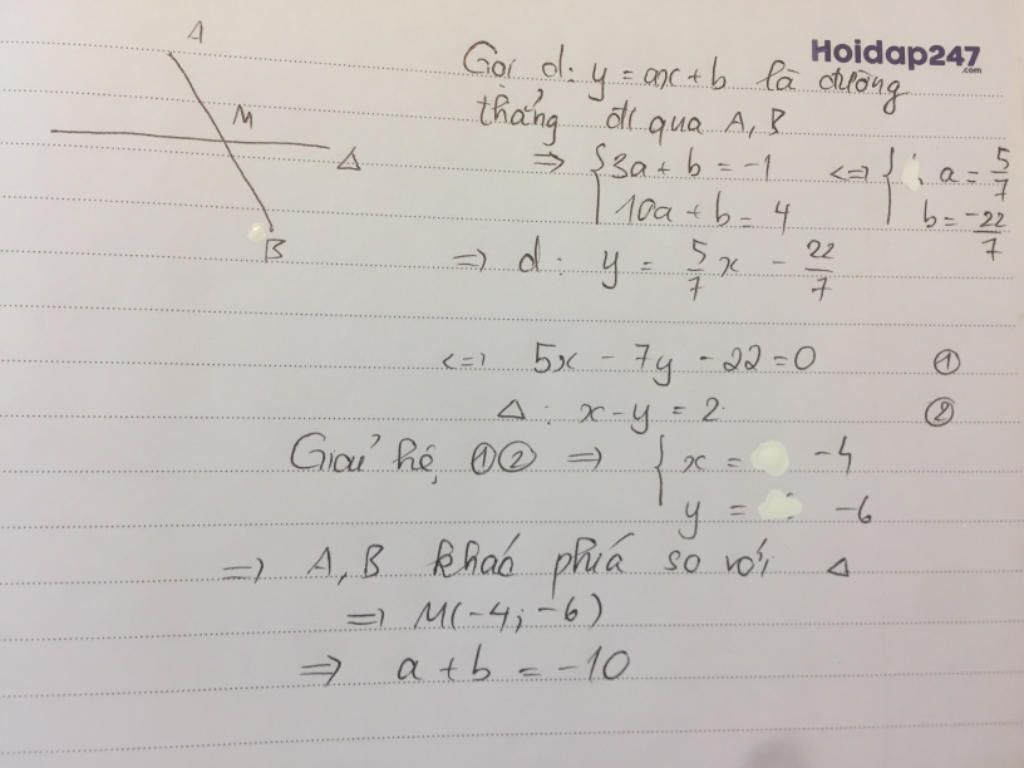 A
M
Δ
B
Hoidap247
.com
Gọi d: y = ax + b là đường
thẳng đi qua A, B
=> { 3a + b = -1 <=> { a = 5/7
10a + b = 4 b = -22/7
=> d: y = 5/7 x - 22/7
<=> 5x - 7y - 22 = 0 ①
Δ: x - y = 2 ②
Giải hệ ①② => { x = -4
y = -6
=> A, B khác phía so với Δ
=> M(-4; -6)
=> a + b = -10